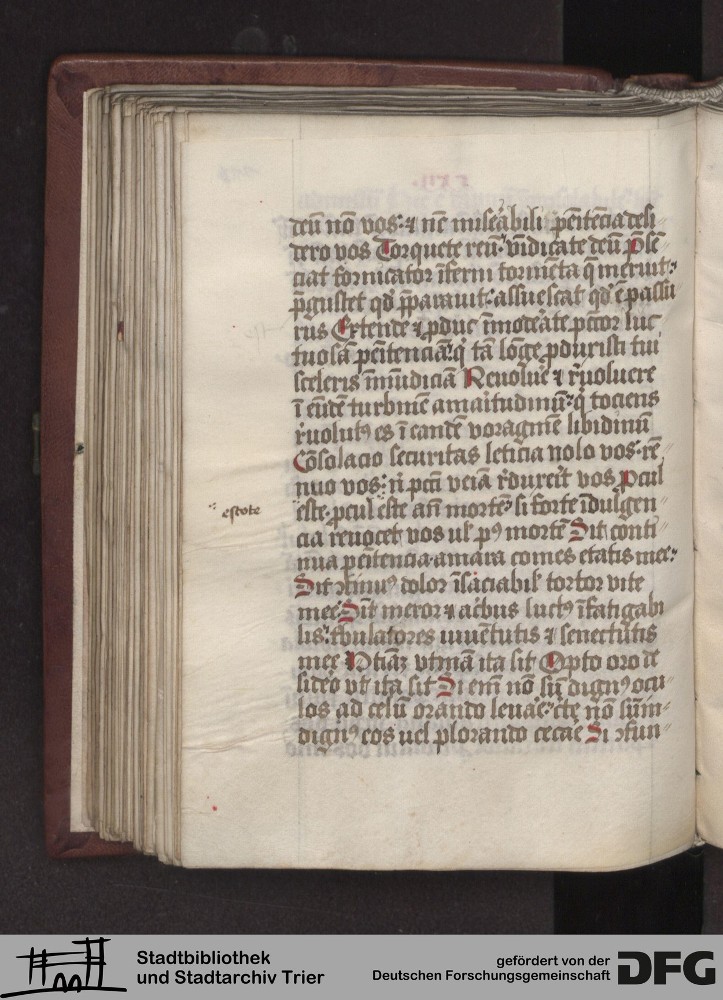 deū nō vos: ⁊ nē miseꝛabili penitēcia desi
dero vos Torquete reū: vīdicate deū Pᵉsē
ciat fornicator īferni tormēta q̄ meruit:
p̄gustet qd̓ p̄parauit: assuescat qd̓ ē passu
rus Extende ⁊ ꝓduc īmodᵉate pctōr luc
tuosā penitenciā: q̓ tā lōge ꝓduxisti tui
sceleris īmūdiciā Reuolue ⁊ r̓uoluere
ī eūdē turbinē amaritudinū: q̓ tociens
r̓uolutꝰ es ī eandē voraginē libidinū
Cōsolacio securitas leticia nolo vos: rē
nuo vos: n̄ pcti̅ venia r̓duxerīt vos Pcul
este: ꝓcul este an̄ mortē: si forte īdulgen
estote
cia reuocet vos ul̓ pꝰ mortē Sit conti
nua penitencia amara comes etatis mee:
Sit ↄtinuꝰ dolor īsaciabil̓ tortor vite
mee: Sīt meror ⁊ ac̓bus luctꝰ īfatigabi
lis: t̓bulatores iuuētutis ⁊ senectutis
mee Vtinā vtinā ita sit Opto oro de
sidero vt ita sit Si enī nō sū dignꝰ ocu
los ad celū orando leuare: c̓te nō sum
dignꝰ eos uel plorando cecare Si ↄfun
Stadtbibliothek
und Stadtarchiv Trier
gefördert von der
Deutschen Forschungsgemeinschaft
DFG